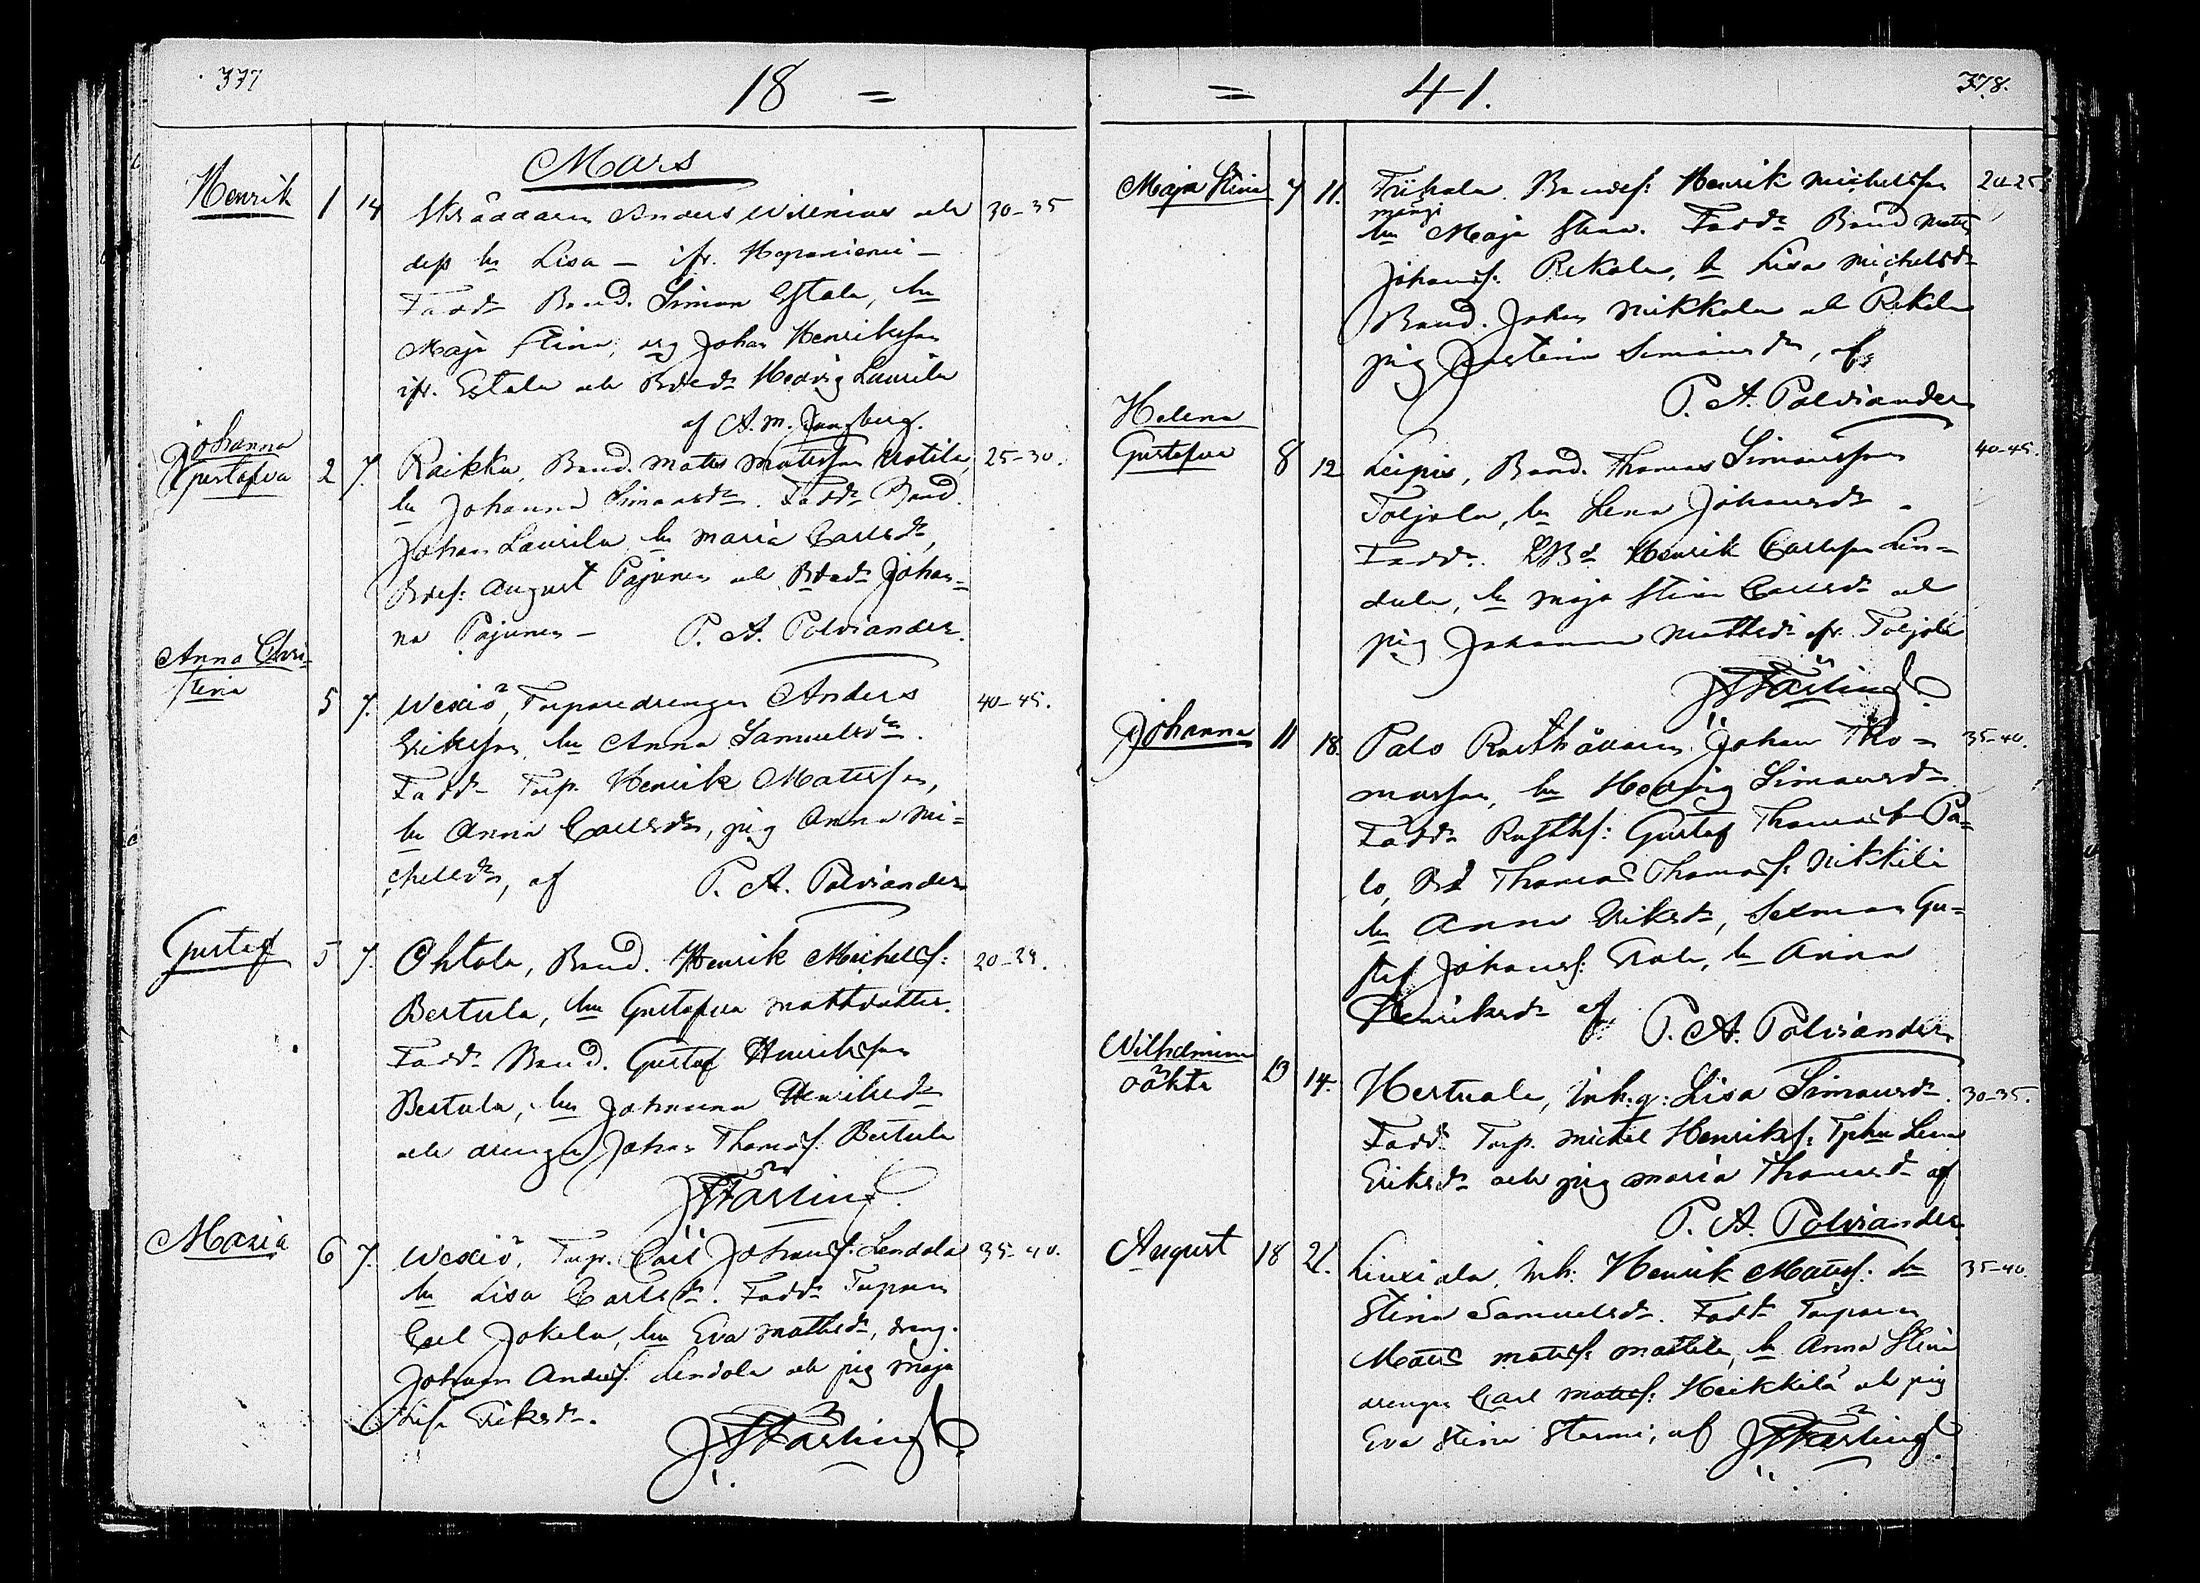 377
18 =
Mars
Henrik 1 14 Skräddaren Anders Wilenius och 30-35
dess hu Lisa - ifr.
Fadd: Bond. Simon Estola, hu
Maja Stina, drg Johan Henriksson
ifr. Estola och Bded: Hedvig Laurila
af A. M. Ljungberg.
Johanna
Gustafva 2 7. Raikku, Bond. Matts Mattsson Uotila 25-30.
hu Johanna Simonsdr. Fadd: Bond.
Johan Laurila hu Maria Carlsdr,
Bdes: August Pajunen och Bded: Johan-
na Pajunen - P. A. Polviander.
Anna Chri-
stina 5 7. Torparedrengen Anders 40-45.
Eriksson, hu Anna Samuelsdr.
Fadd: Torp. Henrik Matsson,
hu Anna Carlsdr, pig Anna Mi-
chelsdr, af P. A. Polviander
Gustaf 5 7. Ohtola, Bond. Henrik Michelss: 20-29.
Bertula, hu Gustafva Mattsdotter.
Fadd: Bond. Gustaf Henriksson
Bertula, hu Johanna Henriksdr
och drengen Johan Thomass: Bertula
Maria 6 7. Torp. Carl Johanss: Lendola 35-40.
hu Lisa Carlsdr. Fadd: Torparen
Carl Jokela, hu Eva Mattsdr, dreng.
Johan Anderss: Lendola och pig Maja
Lisa Eriksdr.
= 41. 378.
Maja Stina 7 11. Bondes: Henrik Michelsson 20-25
hu Maja Stina. Fadd: Bond Matts
Johanss: Rekola, h Lisa Michelsdr
Bond. Johan Nikkola och Rekola
pig Justina Simonsdr, af
P. A. Polviander
Helena
Gustafva 8 12 Leipis, Bond. Thomas Simonsson 40-45.
Toljola, hu Lena Johansdr.
Fadd: Henrik Carlsson Lin=
dula, hu Maja Stina Carlsdr och
pig Johanna Mattsdr ifr. Toljola
Johanna 11 18. Palo Rusthållaren Johan Tho- 35-40.
masson, hu Hedvig Simonsdr
Fadd: Rusths: Gustaf Thomasson Pa=
lo, Thomas Thomass: Nikkilä
hu Anna Eriksdr, Sexman Gu=
staf Johanss: h Anna
Henriksdr af P. A. Polviander
Wilhelmina
oäkta 13 14. Hertuala, Inh.q: Lisa Simonsdr. 30-35.
Fadd: Torp. Michel Henrikss: Tphu Lena
Eriksdr och pig Maria Thomasdr af
P. A. Polviander
August 18 21. Liuxiala, Inh: Henrik Matss: hu 35-40.
Stina Samuelsdr. Fadd: Torparen
Matts Matss: Mattila, h Anna Stina
drengen Carl Matss: Heikkilä och pig
Eva Stina af